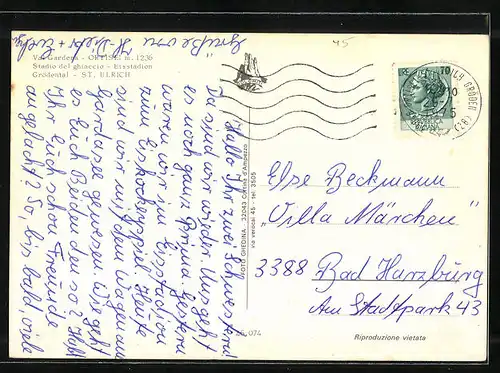 45
Val Gardena - ORTISEI m. 1236
Stadio del ghiaccio - Eisstadion
Grödental - ST. ULRICH
Hallo Ihr zwei Schwestern!
Da sind wir wieder. Uns geht
es noch ganz Prima. Gestern
waren wir im Eisstadion
zum Eishockeyspiel. Heute
sind wir mit dem Wagen am
Gardasee gewesen. Wie geht
es Euch Beiden denn so? Habt
Ihr Euch schon Freunde
angelacht? So, bis bald, viele
Grüße von
FOTO GHEDINA - 32043 Cortina d'Ampezzo
via verocai 45 - tel. 3505
10
Else Beckmann
"Villa Märchen"
3388 Bad Harzburg
Am Stadtpark 43
Riproduzione vietata